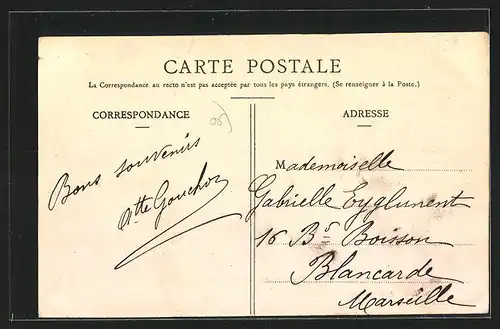 CARTE POSTALE
La Correspondance au recto n'est pas acceptée par tous les pays étrangers. (Se renseigner à la Poste.)
CORRESPONDANCE
ADRESSE
05
Bons souvenirs
Mademoiselle
Gabrielle Eyglunent
16 Bd Boisson
Blancarde
Marseille